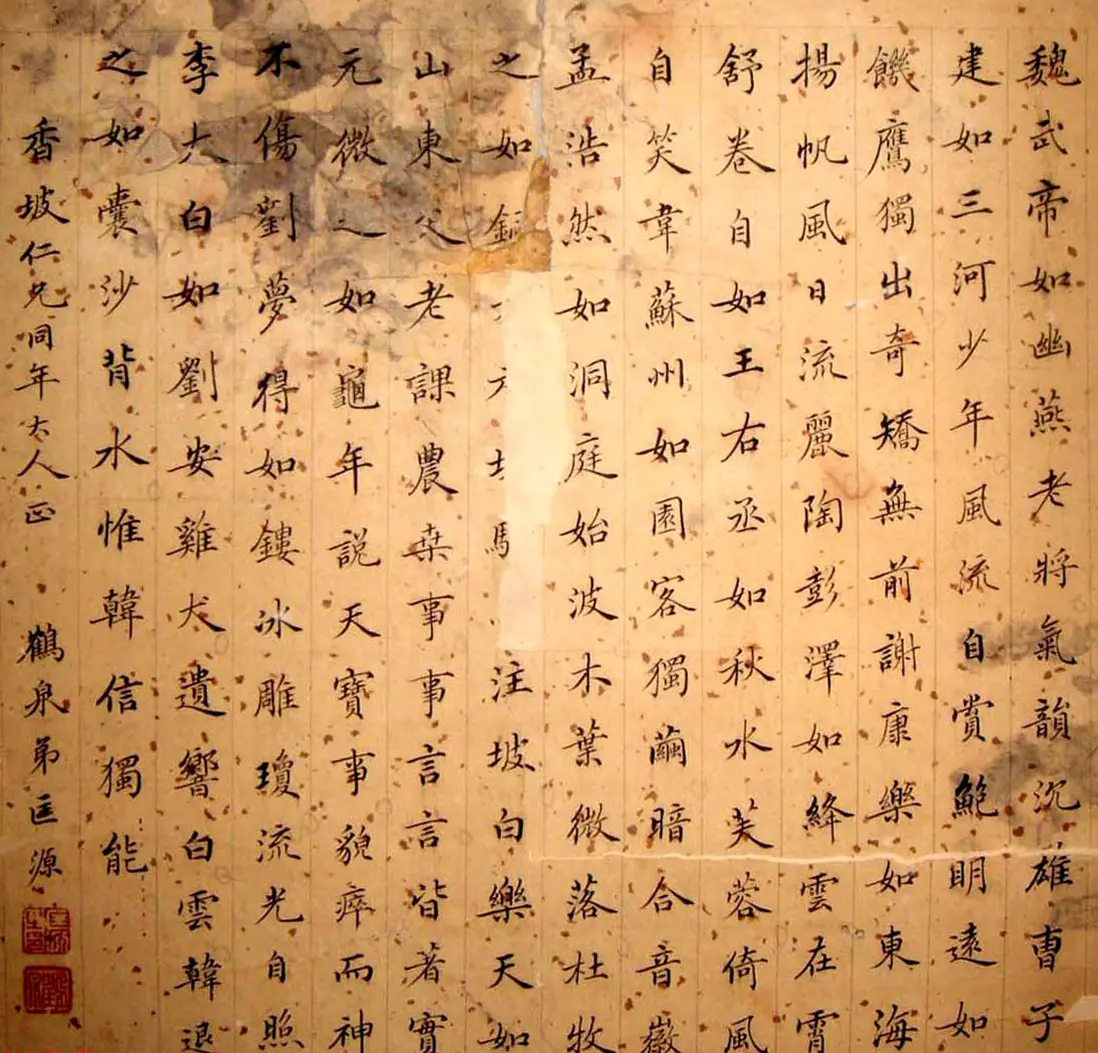 魏武帝如幽燕老將氣韻沉雄曹子
建如三河少年風流自賞鮑明遠如
饑鷹獨出奇矯無前謝康樂如東海
揚帆風日流麗陶彭澤如絳雲在霄
舒卷自如王右丞如秋水芙蓉倚風
自笑韋蘇州如園客獨繭暗合音徽
孟浩然如洞庭始波木葉微落杜牧
之如注坡白樂天如
山東父老課農桑事事言言皆著實
元微之如龜年説天寶事貌瘁而神
不傷劉夢得如鏤冰雕瓊流光自照
李太白如劉安雞犬遺響白雲韓退
之如囊沙背水惟韓信獨能
香坡仁兄同年大人正 鶴泉弟匡源